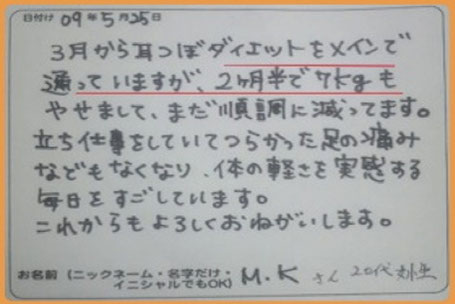 日付け 09年5月25日
3月から耳つぼダイエットをメインで
通っていますが、2ヶ月半で7kgも
やせまして、まだ順調に減ってます。
立ち仕事をしていてつらかった足の痛み
などもなくなり、体の軽さを実感する
毎日をすごしています。
これからもよろしくおねがいします。
お名前(ニックネーム・名字だけ・
イニシャルでもOK) M.K さん 20代 女性